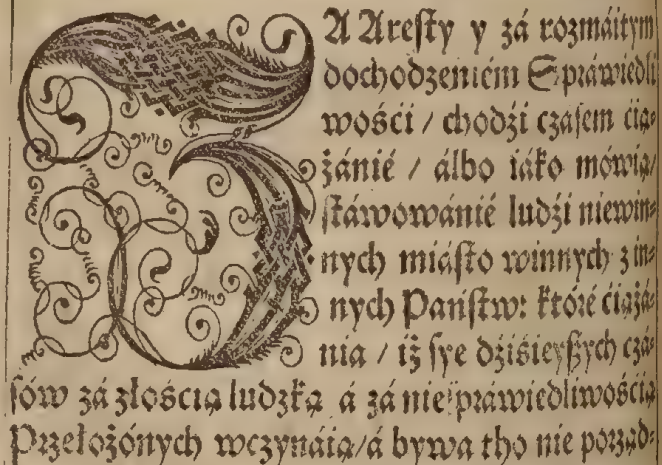 ZA Aresty y zá rozmáitym
dochodzeniém Spráwiedli
wośći / chodźi czásem ćią⸗
żánié / álbo iáko mówią/
stáwowánié ludźi niewin⸗
nych miásto winnych z in⸗
nych Pánstw: które ćiążá⸗
nia / iż sye dźiśieyßych czá⸗
sów zá złośćią ludzką á zá niespráwiedliwośćią
Przełożónych wczynáią/á bywa tho nie porząd⸗